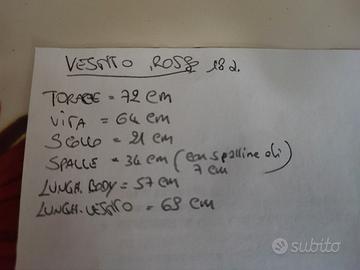 VESTITO ROSSO 18 a.
TORACE = 72 cm
VITA = 64 cm
SCOLLO = 21 cm
SPALLE = 34 cm (con spalline di
7 cm)
LUNGH. BODY = 57 cm
LUNGH. VESTITO = 69 cm
subito